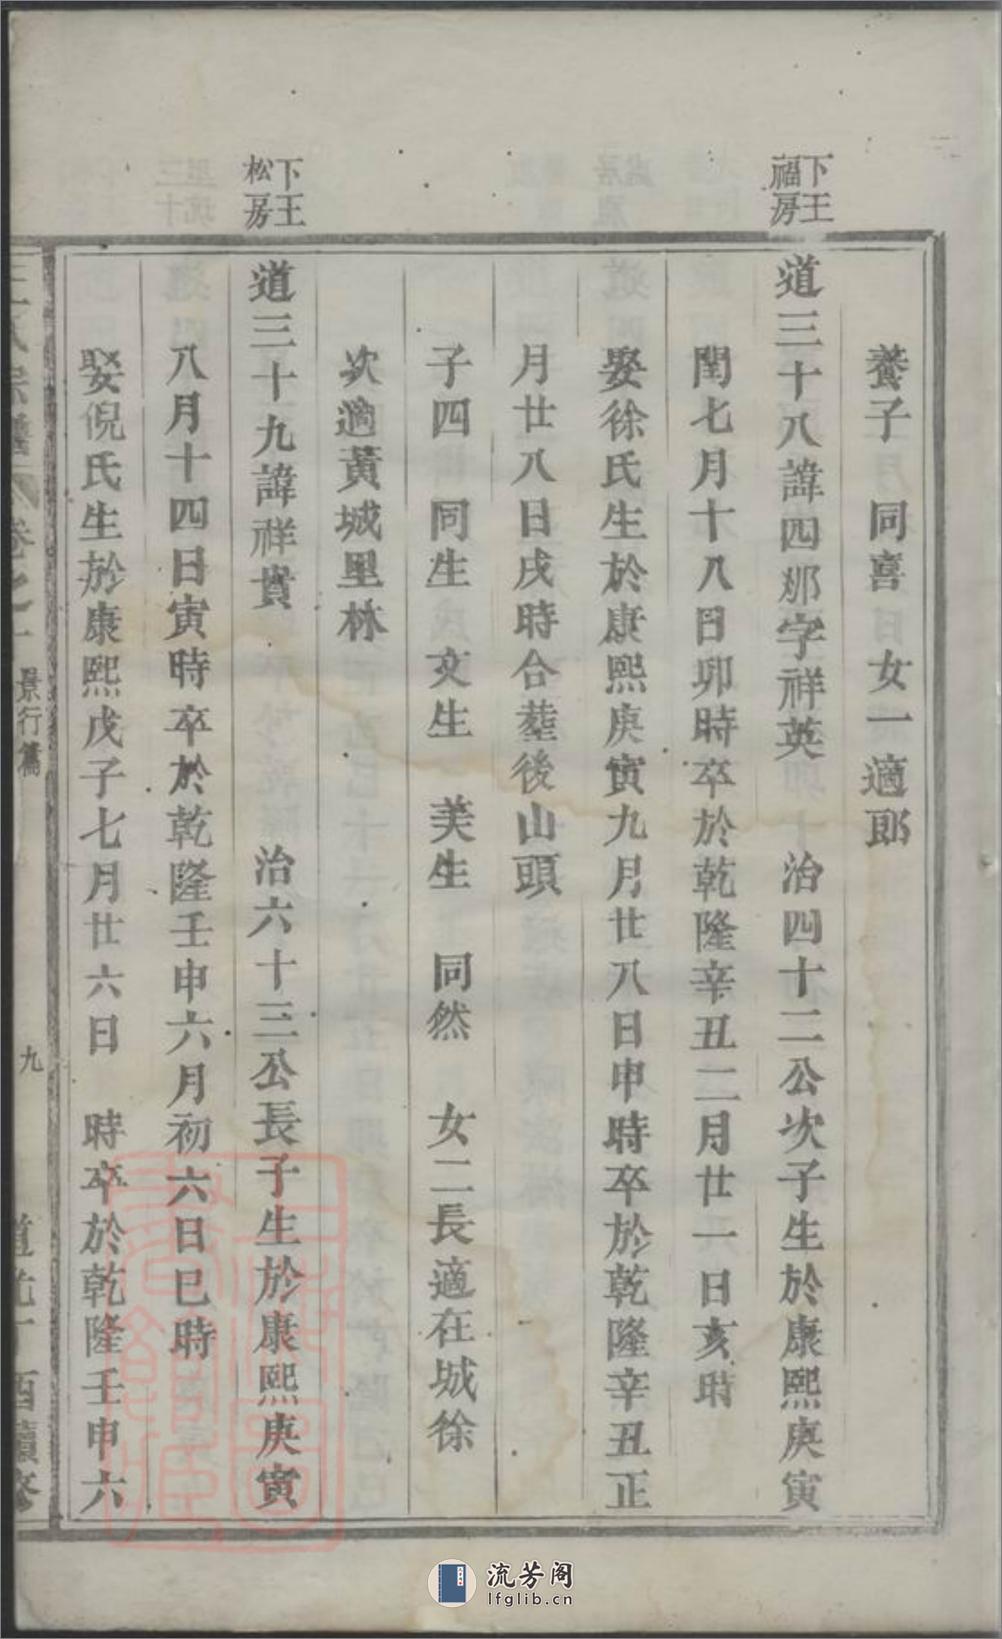 養子 同喜 女一適郎
下王
福房
道三十八諱四郍字祥英 治四十二公次子生於康熙庚寅
閏七月十八日卯時卒於乾隆辛丑二月廿一日亥時
娶徐氏生於康熙庚寅九月廿八日申時卒於乾隆辛丑正
月廿八日戌時合葬後山頭
子四 同生 文生 美生 同然 女二長適在城徐
次適黃城里林
下王
松房
道三十九諱祥貴 治六十三公長子生於康熙庚寅
八月十四日寅時卒於乾隆壬申六月初六日巳時
娶倪氏生於康熙戊子七月廿六日 時卒於乾隆壬申六
王氏宗譜 卷之 景行篇 九 道光丁酉續修
流芳阁
lfglib.cn